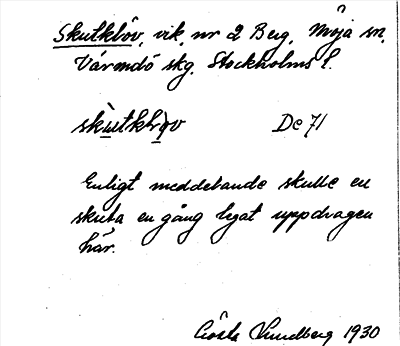 Skutklöv, vik, nr 2 Berg, Möja sn,
Värmdö skg. Stockholms l.
skùtklø̀v De 71
Enligt meddelande skulle en
skuta en gång legat uppdragen
här.
Gösta Sundberg 1930